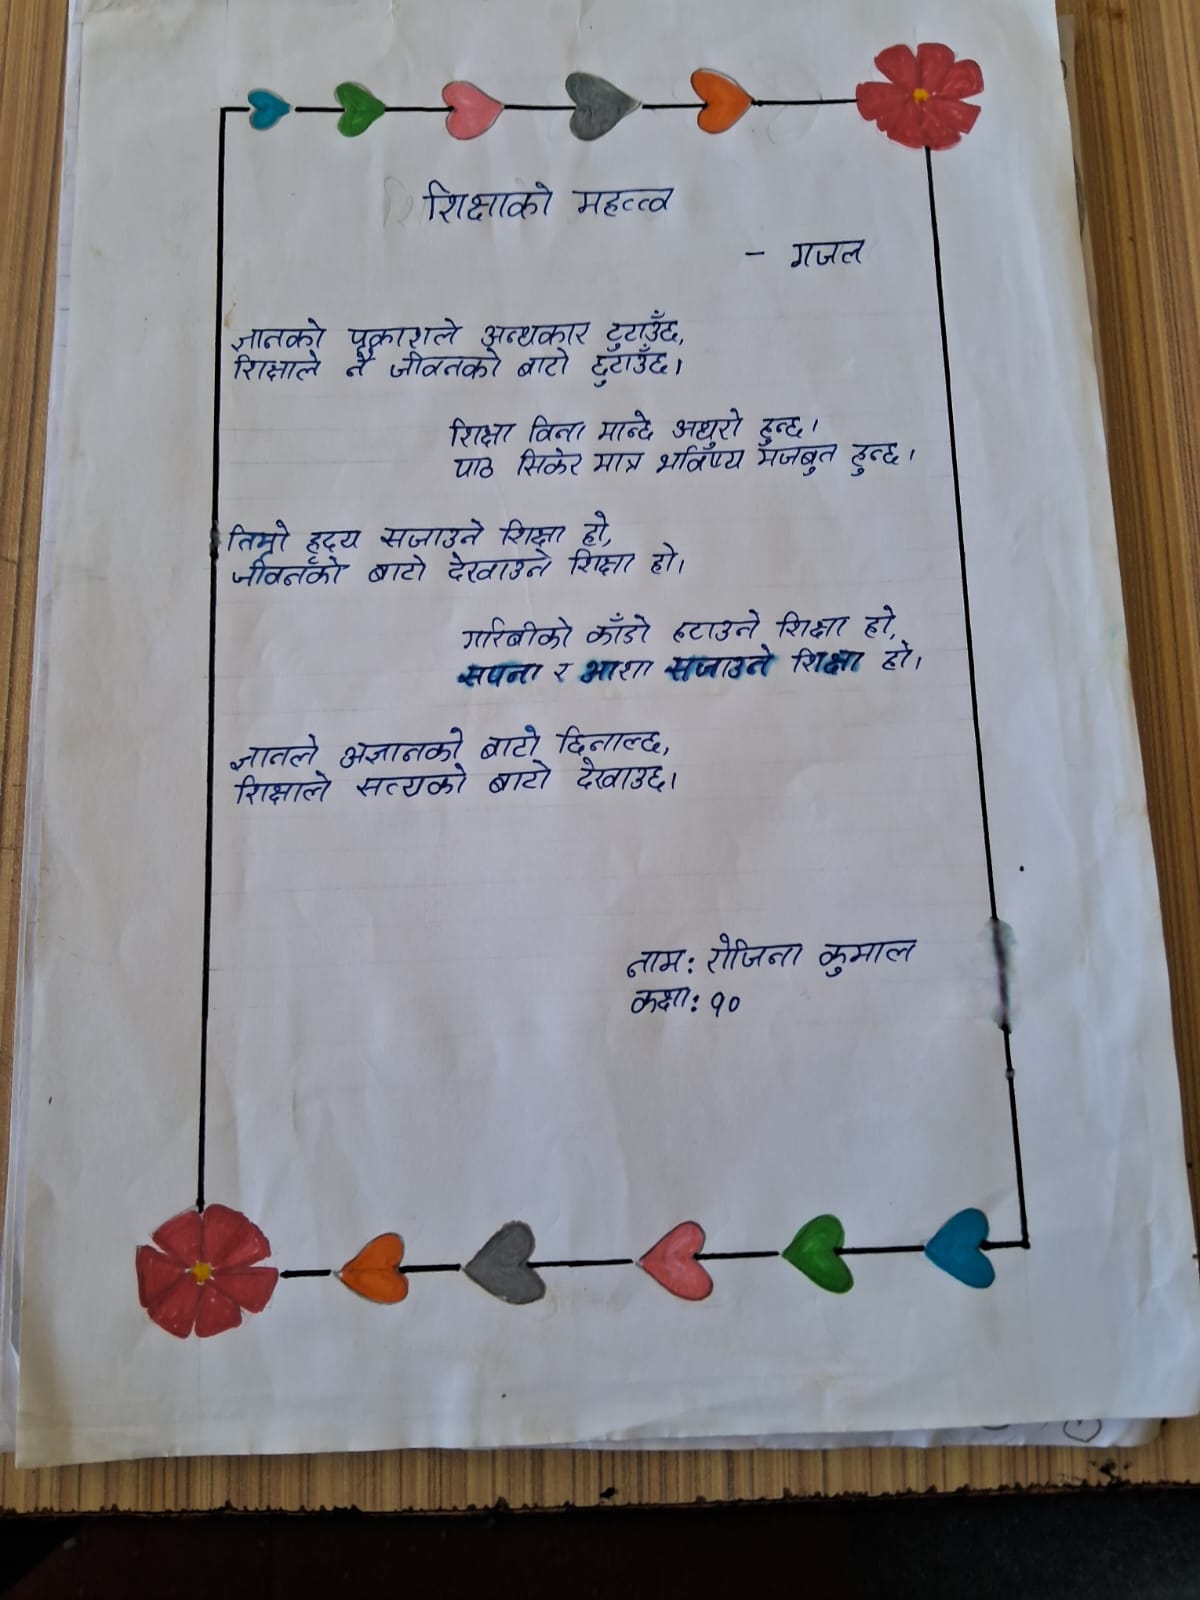 शिक्षाको महत्त्व
- गजल
ज्ञानको प्रकाशले अन्धकार टुटाउँछ,
शिक्षाले नै जीवनको बाटो छुटाउँछ।
शिक्षा विना मान्छे अधुरो हुन्छ।
पाठ सिकेर मात्र भविष्य मजबुत हुन्छ।
तिम्रो हृदय सजाउने शिक्षा हो,
जीवनको बाटो देखाउने शिक्षा हो।
गरिबीको काँडो हटाउने शिक्षा हो,
सपना र आशा सजाउने शिक्षा हो।
ज्ञानले अज्ञानको बाटो छिनाल्छ,
शिक्षाले सत्यको बाटो देखाउछ।
नाम: रोजिना कुमाल
कक्षा: १०